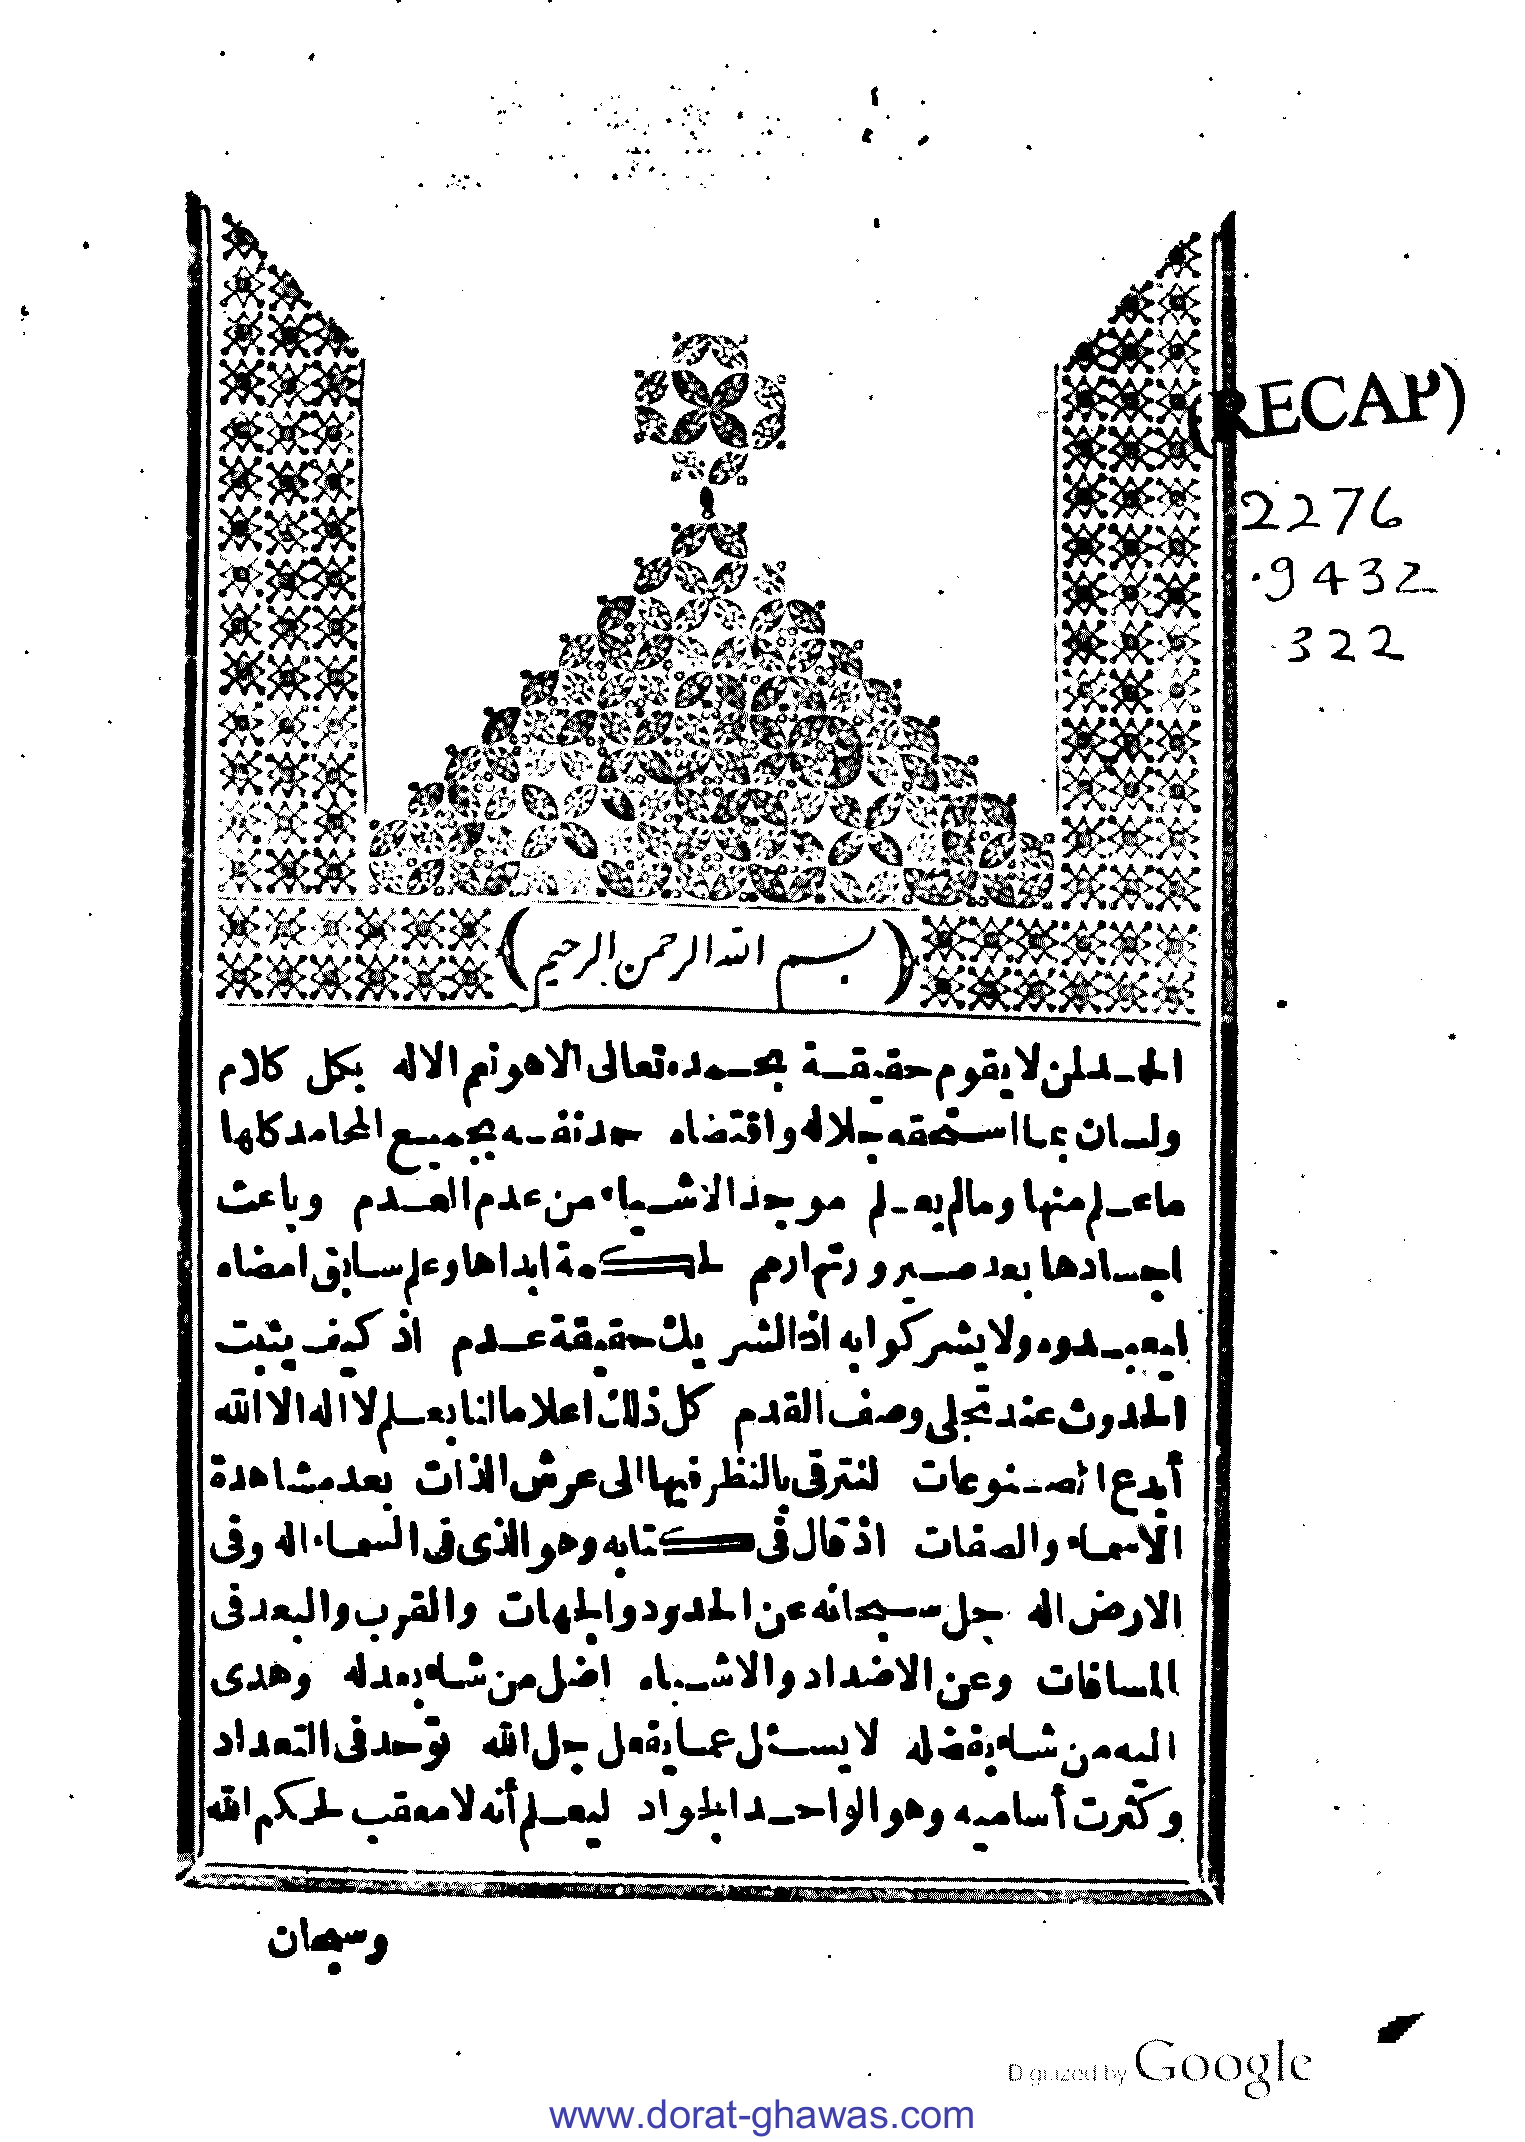 (RECAP)
2276
.9432
322
(بسم الله الرحمن الرحيم)
الحمد لمن لا يقوم حقيقة بحمده تعالى الا هو نعم الاله بكل كلام
ولسان بما استحقه جلاله واقتضاه حمد نفسه بجميع المحامد كلها
ما علم منها وما لم يعلم موجد الاشياء من عدم العدم وباعث
اجسادها بعد صيرورتها رمم لحكمة ابداها وعلم سابق امضاه
ليعبدوه ولا يشركوا به اذ الشريك حقيقة عدم اذ كيف يثبت
الحدوث عند تجلى وصف القدم كل ذلك اعلاما لنا بعلم لا اله الا الله
أبدع المصنوعات لنترقى بالنظر فيها الى عرش الذات بعد مشاهدة
الاسماء والصفات اذ قال فى كتابه وهو الذى فى السماء اله وفى
الارض اله جل سبحانه عن الحدود والجهات والقرب والبعد فى
المسافات وعن الاضداد والاشباه اضل من شاء بعدله وهدى
اليه من شاء بفضله لا يسئل عما يفعل جل الله توحد فى التعداد
وكثرت أساميه وهو الواحد الجواد ليعلم أنه لا معقب لحكم الله
وسبحان
Digitized by Google
www.dorat-ghawas.com